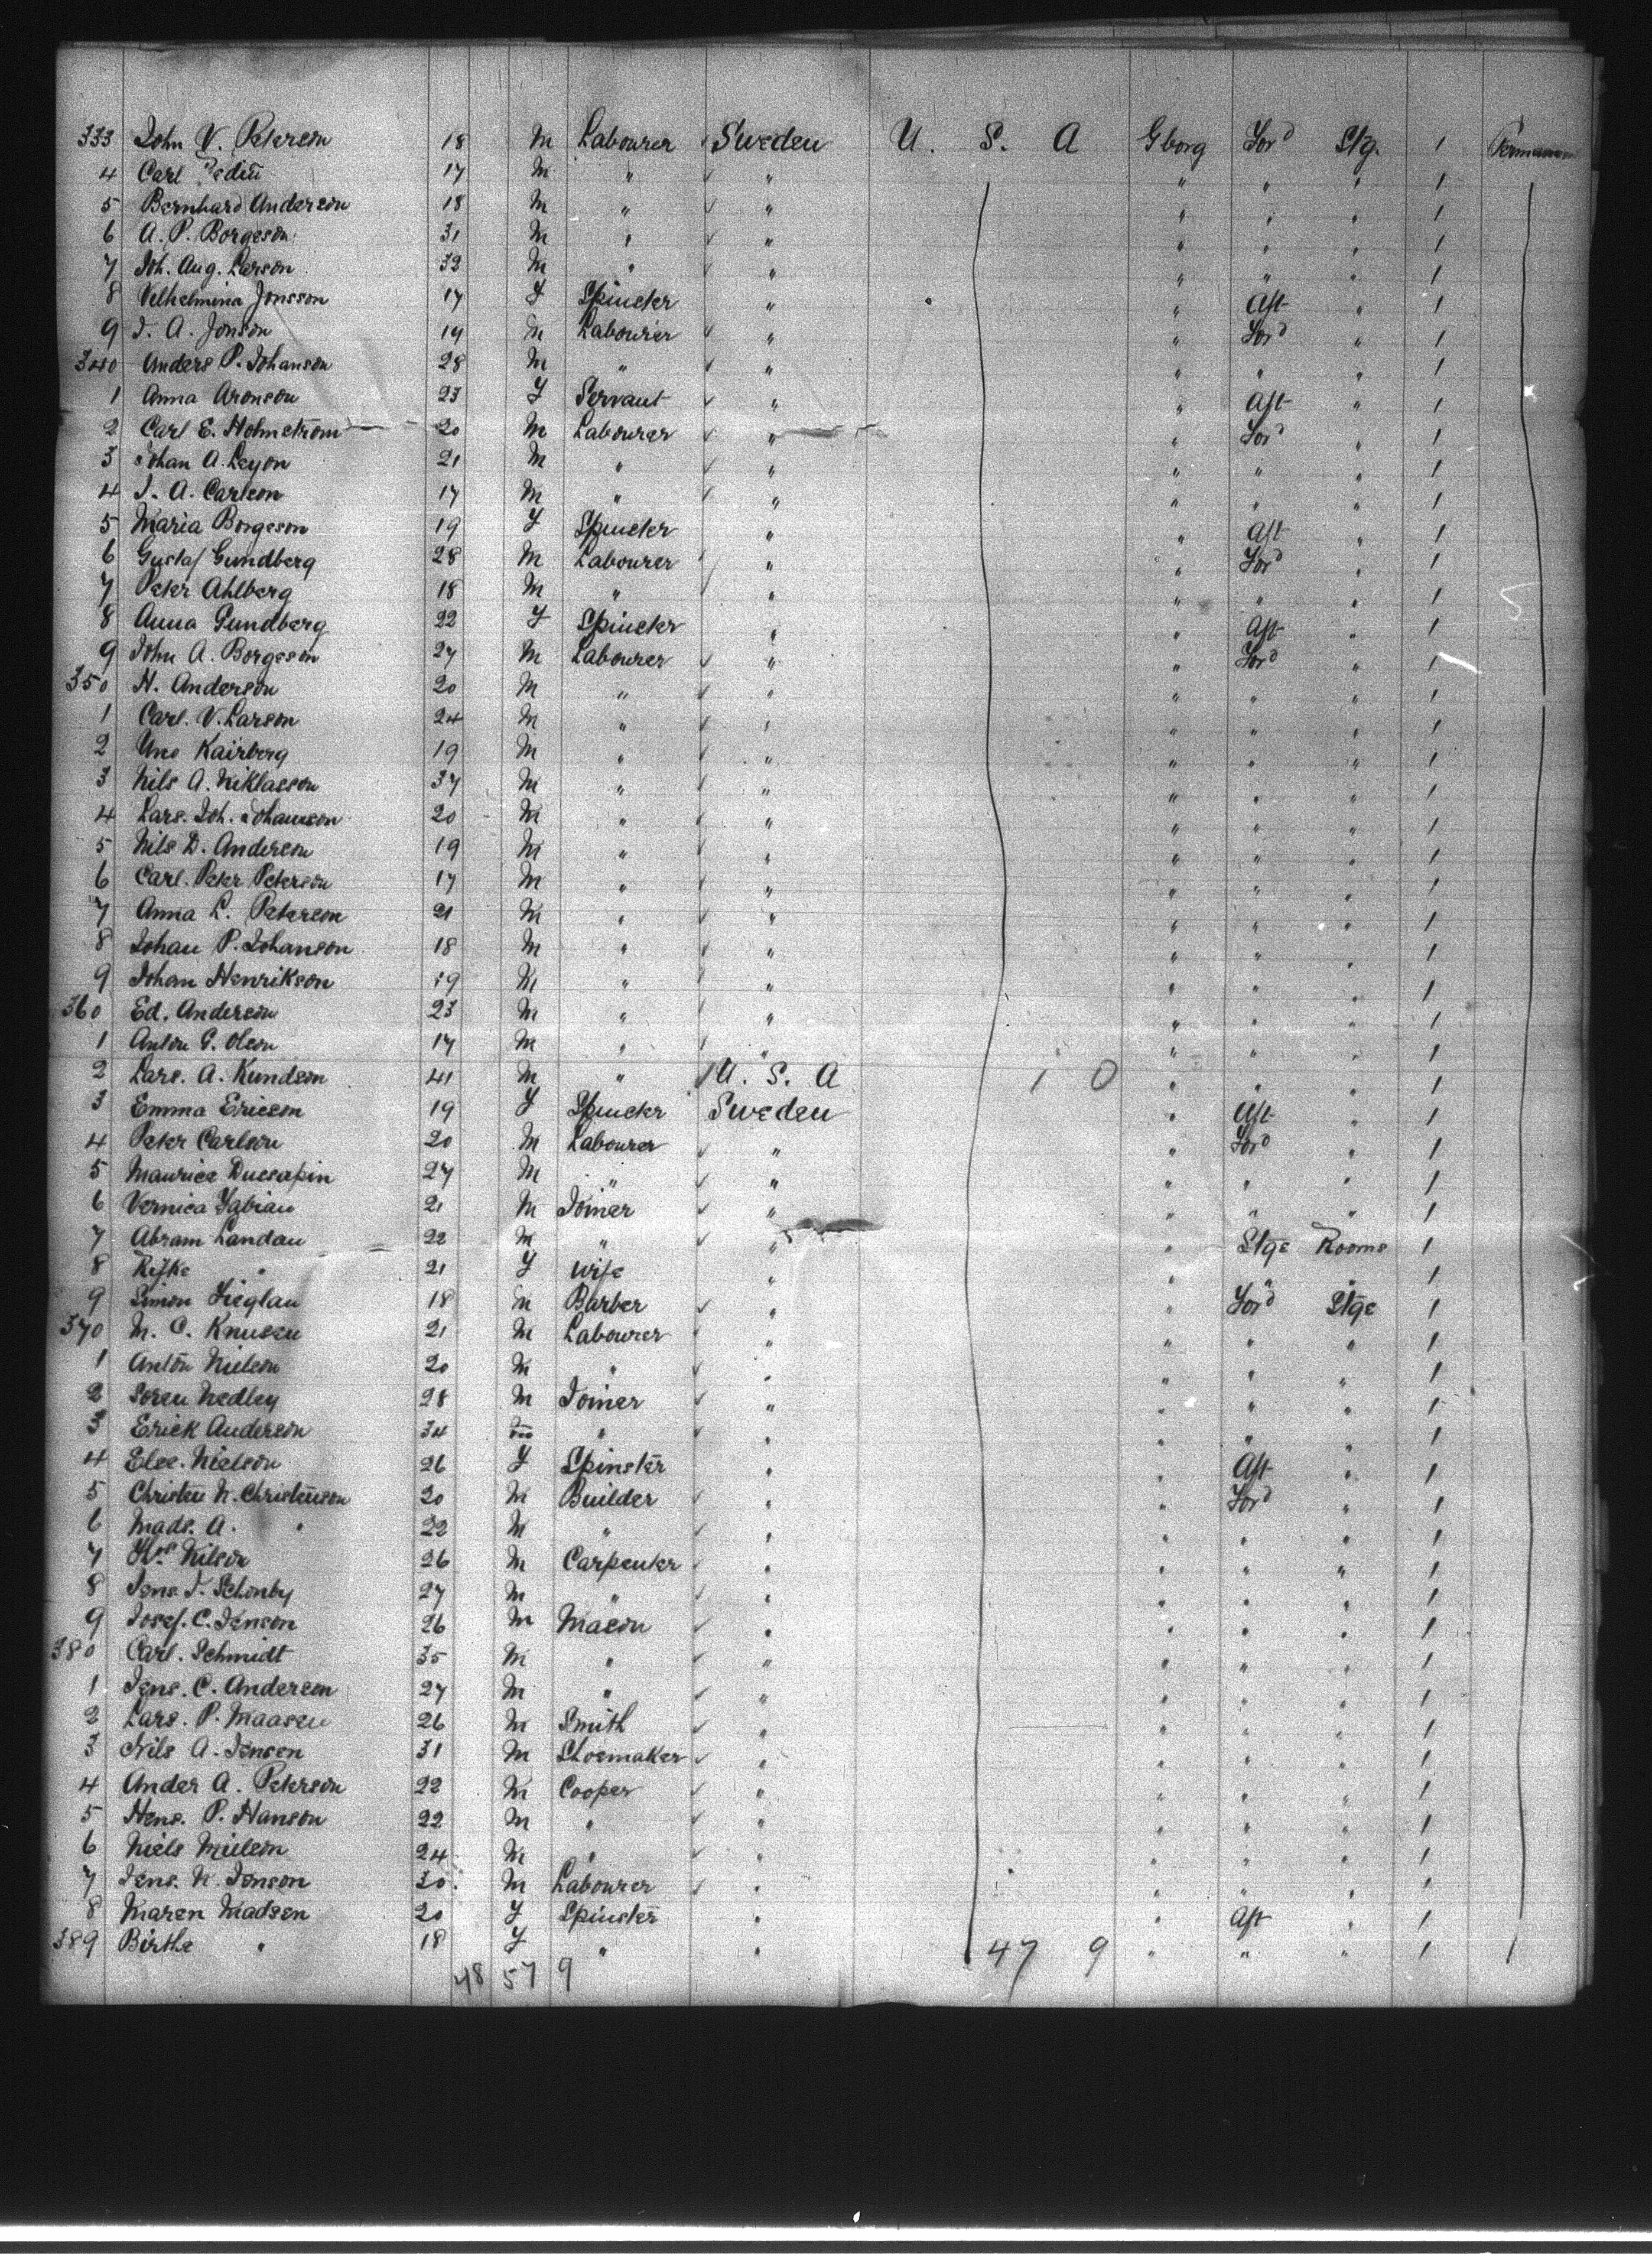 333 John V. Peterson 18 M Labourer Sweden U. S. A Gborg For'd Stg. 1 Permanent
4 Carl 17 M " " " " " 1
5 Bernhard Anderson 18 M " " " " " 1
6 A. P. Borgeson 31 M " " " " " 1
7 Joh. Aug. Larson 32 M " " " " " 1
8 Vilhelmina Jonsson 17 F Spinster " " Aft " 1
9 J. A. Jonson 19 M Labourer " " For'd " 1
340 Anders P. Johanson 28 M " " " " " 1
1 Anna Aronson 23 F Servant " " Aft " 1
2 Carl E. Holmstrom 20 M Labourer " " For'd " 1
3 Johan A. Leyon 21 M " " " " " 1
4 J. A. Carlson 17 M " " " " " 1
5 Maria Borgeson 19 F Spinster " " Aft " 1
6 Gustaf Gundberg 28 M Labourer " " For'd " 1
7 Peter Ahlberg 18 M " " " " " 1
8 Anna Gundberg 22 F Spinster " " Aft " 1
9 John A. Borgeson 27 M Labourer " " For'd " 1
350 H. Anderson 20 M " " " " " 1
1 Carl. V. Larson 24 M " " " " " 1
2 Uno Kairberg 19 M " " " " " 1
3 Nils A. Niklasson 37 M " " " " " 1
4 Lars. Joh. Johanson 20 M " " " " " 1
5 Nils D. Anderson 19 M " " " " " 1
6 Carl. Peter Peterson 17 M " " " " " 1
7 Anna L. Peterson 21 M " " " " " 1
8 Johan P. Johanson 18 M " " " " " 1
9 Johan Henrikson 19 M " " " " " 1
360 Ed. Anderson 23 M " " " " " 1
1 Anton G. Olson 17 M " " " " " 1
2 Lars. A. Kundson 41 M " U. S. A 1 0 " " " 1
3 Emma Ericson 19 F Spinster Sweden " Aft " 1
4 Peter Carlson 20 M Labourer " " For'd " 1
5 Maurice Ducsapin 27 M " " " " " 1
6 Vernica Fabian 21 M Joiner " " " " 1
7 Abram Landau 22 M " " " Stge Rooms 1
8 Rifke " 21 F Wife " " " " 1
9 Simon Zieglau 18 M Barber " " For'd Stge 1
370 M. C. Knusen 21 M Labourer " " " " 1
1 Anton Nielson 20 M " " " " " 1
2 Soren Nedley 28 M Joiner " " " " 1
3 Erick Anderson 34 M " " " " " 1
4 Else. Nielson 26 F Spinster " " Aft " 1
5 Christen N. Christenson 20 M Builder " " For'd " 1
6 Mads. A. " 22 M " " " " " 1
7 Nilson 26 M Carpenter " " " " 1
8 Jens. J. Schonby 27 M " " " " " 1
9 Josef. C. Jenson 26 M Mason " " " " 1
380 Carl. Schmidt 35 M " " " " " 1
1 Jens. C. Anderson 27 M " " " " " 1
2 Lars. P. Maasen 26 M Smith " " " " 1
3 Nils A. Jensen 31 M Shoemaker " " " " 1
4 Ander A. Peterson 22 M Cooper " " " " 1
5 Hens. P. Hanson 22 M " " " " " 1
6 Niels Mielson 24 M " " " " " 1
7 Jens. N. Jenson 30 M Labourer " " " " 1
8 Maren Madsen 20 F Spinster " " Aft " 1
389 Birthe " 18 F " " 47 9 " " " 1 1
48 57 9